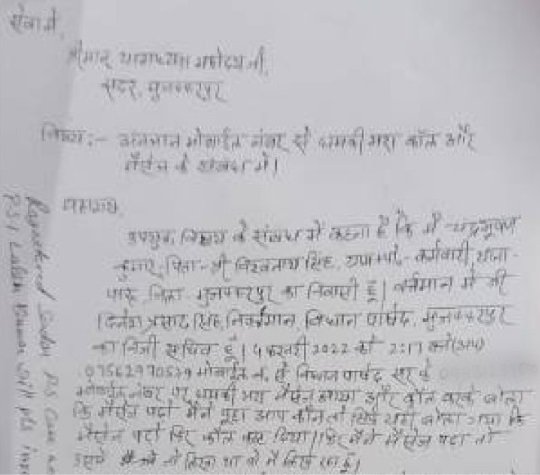 सेवा में,
श्रीमान थानाध्यक्ष महोदय जी,
सदर, मुजफ्फरपुर
विषय:- अनजान मोबाईल नंबर से धमकी भरा कॉल और
मैसेज के संबंध में।
महाशय,
उपर्युक्त विषय के संबंध में कहना है कि मैं चन्द्रभूषण
कुमार, पिता- श्री विश्वनाथ सिंह, ग्राम+पो०- कर्मवारी, थाना-
पारू, जिला- मुजफ्फरपुर का निवासी हूँ। वर्तमान में श्री
दिनेश प्रसाद सिंह, निवर्तमान विधान पार्षद, मुजफ्फरपुर
का निजी सचिव हूँ। 4 फरवरी 2022 को 2:17 बजे
07562970529 मोबाईल नं. से विधान पार्षद सर के
मोबाईल नंबर पर धमकी भरा मैसेज आया और कॉल करके बोला
कि मैसेज पढ़ो मैंने पूछा आप कौन तो सिर्फ यही बोला गया कि
मैसेज पढ़ो फिर कॉल काट दिया। फिर मैंने मैसेज पढ़ा तो
उसमें जो लिखा था वो मैं लिख रहा हूँ।
Registered Sadar P.S Case
PSI Lalan Kumar will pls